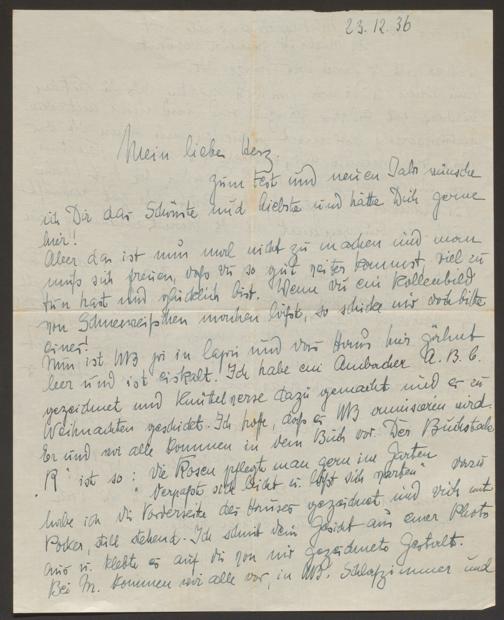 23.12.36
Mein liebes Herz,
zum Fest und neuen Jahr wünsche
ich Dir das Schönste und Liebste und hätte Dich gerne
hier!!
Aber das ist nun mal nicht zu machen und man
muss sich freuen, dass Du so gut weiter kommst, viel zu
tun hast und glücklich bist. Wenn Du ein Rollenbild
von Schneeweisschen machen lässt, so schicke mir doch bitte
eines!
Nun ist WB ja in und das Haus hier gähnt
leer und ist eiskalt. Ich habe ein Ambacher A.B.C.
gezeichnet und Knüttelverse dazu gemacht und es zu
Weihnachten geschickt. Ich hoffe, dass es WB amüsieren wird.
Er und wir alle kommen in dem Buch vor. Der Buchstabe
"R" ist so: Die Rosen pflegt man gern im Garten
Verpasst sich leicht u. lässt sich warten" dazu
habe ich die Vorderseite des Hauses gezeichnet und Dich mit
still stehend. Ich schnitt Dein Gesicht aus einer Photo
aus u. klebte es auf die von mir gezeichnete Gestalt.
Bei M. kommen wir alle vor, in WB. Schlafzimmer und